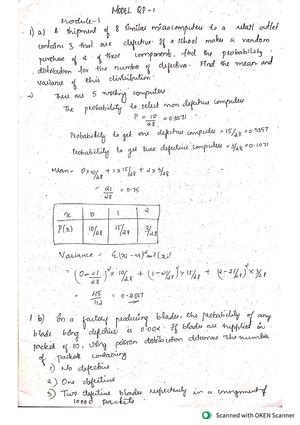 MODEL QP-1
Module-1
1) a) A shipment of 8 similar microcomputers to a retail outlet
contains 3 that are defective. If a school makes a random
purchase of 2 of these components, find the probability
distribution for the number of defective. Find the mean and
variance of this distribution.
→ There are 5 working computers
The probability to select non defective computers
P = 10/28 = 0.3571
Probability to get one defective computer = 15/28 = 0.5357
Probability to get two defective computer = 3/28 = 0.1071
Mean = 0x10/28 + 1x15/28 + 2x3/28
= 21/28 = 0.75
x 0 1 2
P(x) 10/28 15/28 3/28
Variance = Σ(x-μ)² P(x)
= (0-21/28)² x 10/28 + (1-21/28)² x 15/28 + (2-21/28)² x 3/28
= 45/112
1 b) In a factory producing blades, the probability of any
blade being defective is 0.002. If blades are supplied in
packet of 10, using poisson distribution determine the number
of packets containing
1) No defective
2) One defective
3) Two defective blades respectively in a consignment of
10000 packets.
Scanned with OKEN Scanner